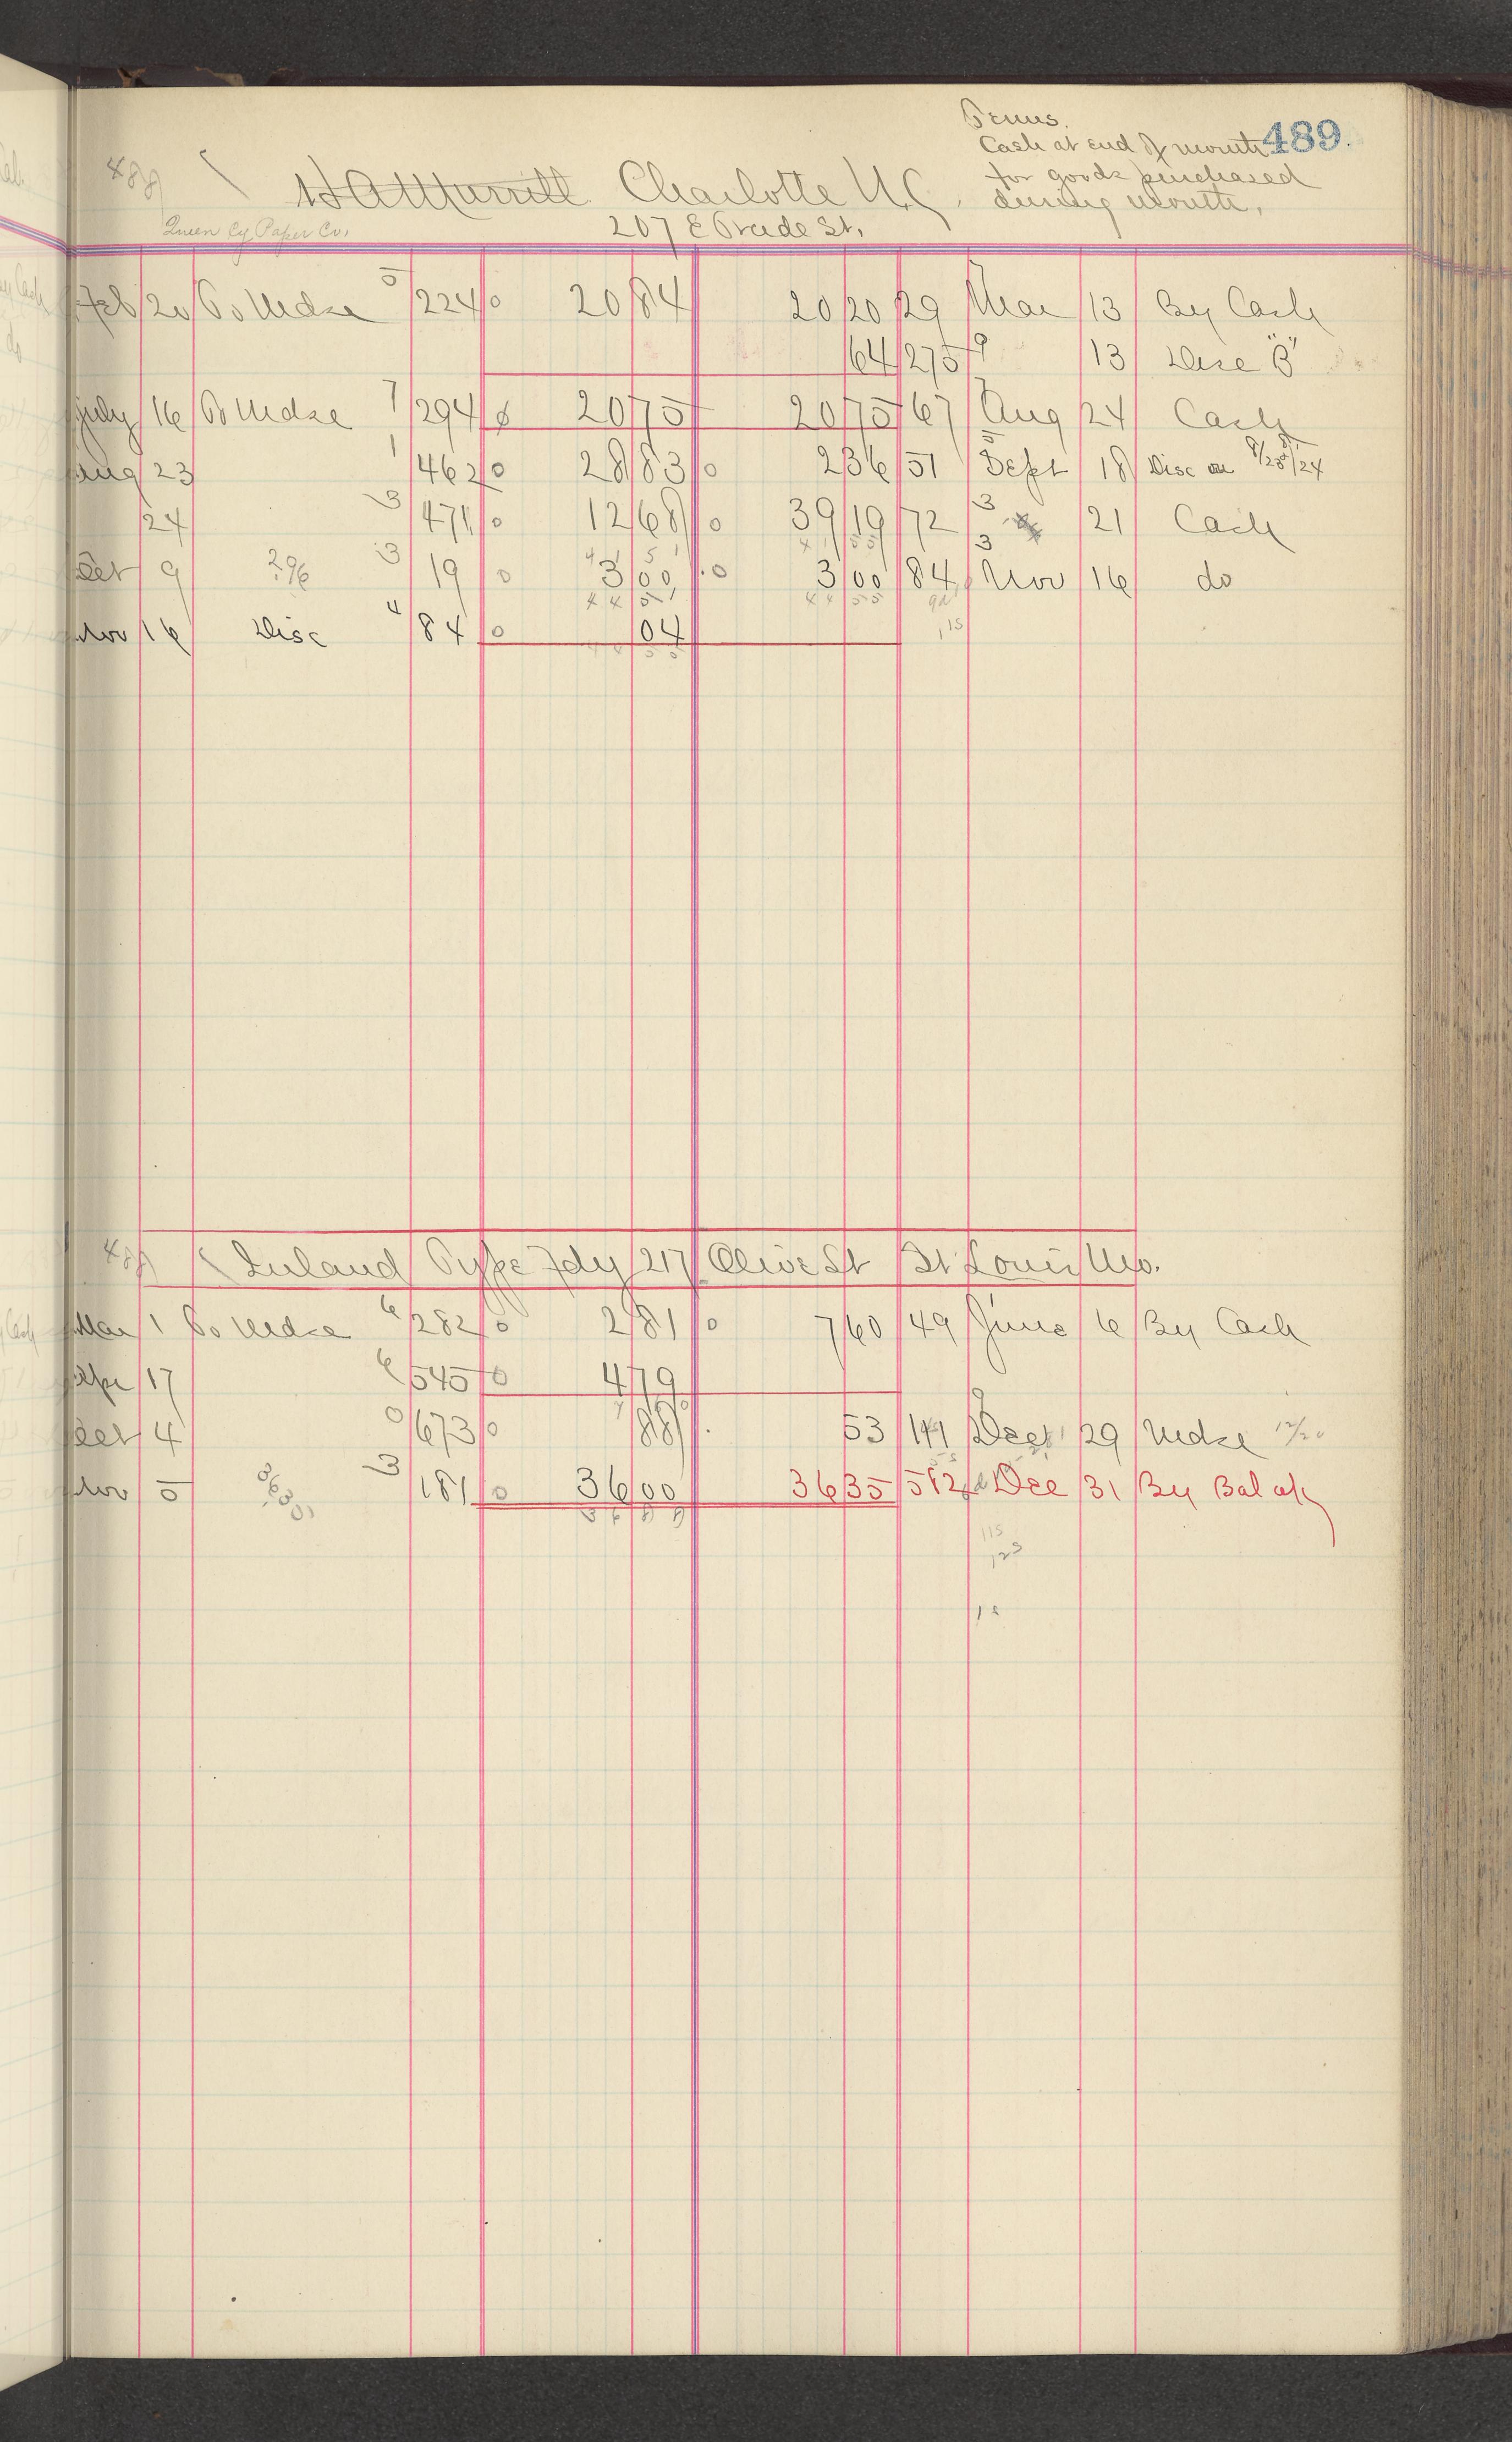 Terms.
Cash at end of month 489.
for goods purchased
during month.
488 H A Murrill Charlotte N.C.
Queen Cy. Paper Co. 207 E Trade St.
Feb 20 To Mdse 5 224 0 20 84 20 20 29 Mar 13 By Cash
64 275 9 13 Disc "B"
July 16 To Mdse 7 294 0 20 75 20 75 67 Aug 24 Cash
Aug 23 1 462 0 28 83 0 2 36 51 5 Sept 18 Disc on 8/23 8/24
24 3 471 0 12 68 0 39 19 72 3 21 Cash
Oct 9 296 3 19 0 3 00 0 3 00 84 3 Nov 16 do
Nov 16 Disc 4 84 0 04
488 Inland Type Fdy 217 Olive St St Louis Mo.
Mar 1 To Mdse 6 282 0 2 81 0 7 60 49 June 6 By Cash
Apr 17 6 545 0 4 79
Oct 4 0 673 0 88 53 Dec 29 Mdse 12/20
Nov 5 3 181 0 36 00 36 35 512 Dec 31 By Bal a/c
115
123